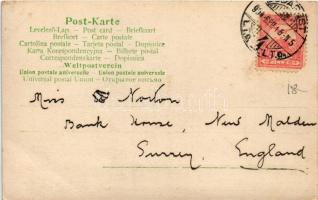 Post-Karte
Levelező-Lap — Post card — Briefkaart
Brefkort — Carte postale
Cartolina postale — Tarjeta postal — Dopisnice
Karta Korespondencyjna — Billete postal
Correspondenzkarte — Dopisnica
Weltpostverein
Union postale universelle — Union postale universelle
Universal postal Union
Miss Norton
Bank House, New Malden
Surrey, England